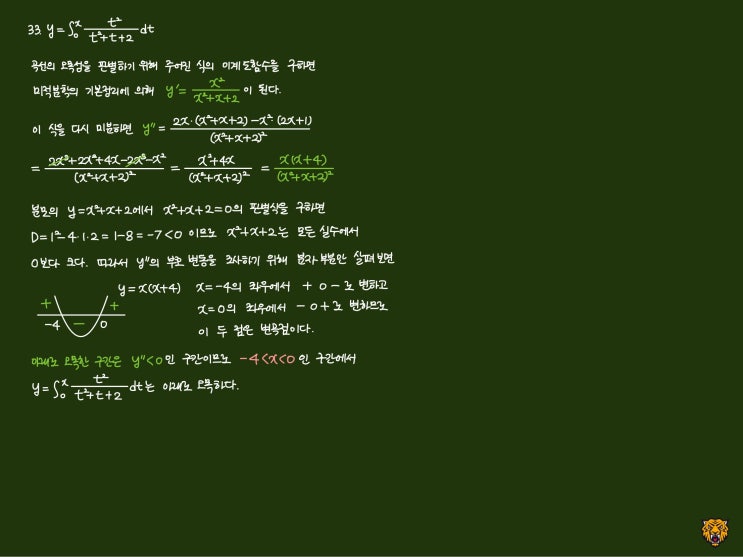 33. y = ∫₀ˣ t²/(t²+t+2) dt
곡선의 오목성을 판별하기 위해 주어진 식의 이계도함수를 구하면
미적분학의 기본정리에 의해 y' = x²/(x²+x+2) 이 된다.
이 식을 다시 미분하면 y'' = (2x·(x²+x+2) - x²·(2x+1))/(x²+x+2)²
= (2x³+2x²+4x-2x³-x²)/(x²+x+2)² = (x²+4x)/(x²+x+2)² = x(x+4)/(x²+x+2)²
분모의 y=x²+x+2에서 x²+x+2=0의 판별식을 구하면
D=1²-4·1·2=1-8=-7<0 이므로 x²+x+2는 모든 실수에서
0보다 크다. 따라서 y''의 부호 변동을 조사하기 위해 분자 부분만 살펴보면
y=x(x+4)
+ − +
-4 0
x=-4의 좌우에서 + 0 - 로 변하고
x=0의 좌우에서 - 0 + 로 변하므로
이 두 점은 변곡점이다.
아래로 오목한 구간은 y''<0인 구간이므로 -4<x<0인 구간에서
y = ∫₀ˣ t²/(t²+t+2) dt는 아래로 오목하다.